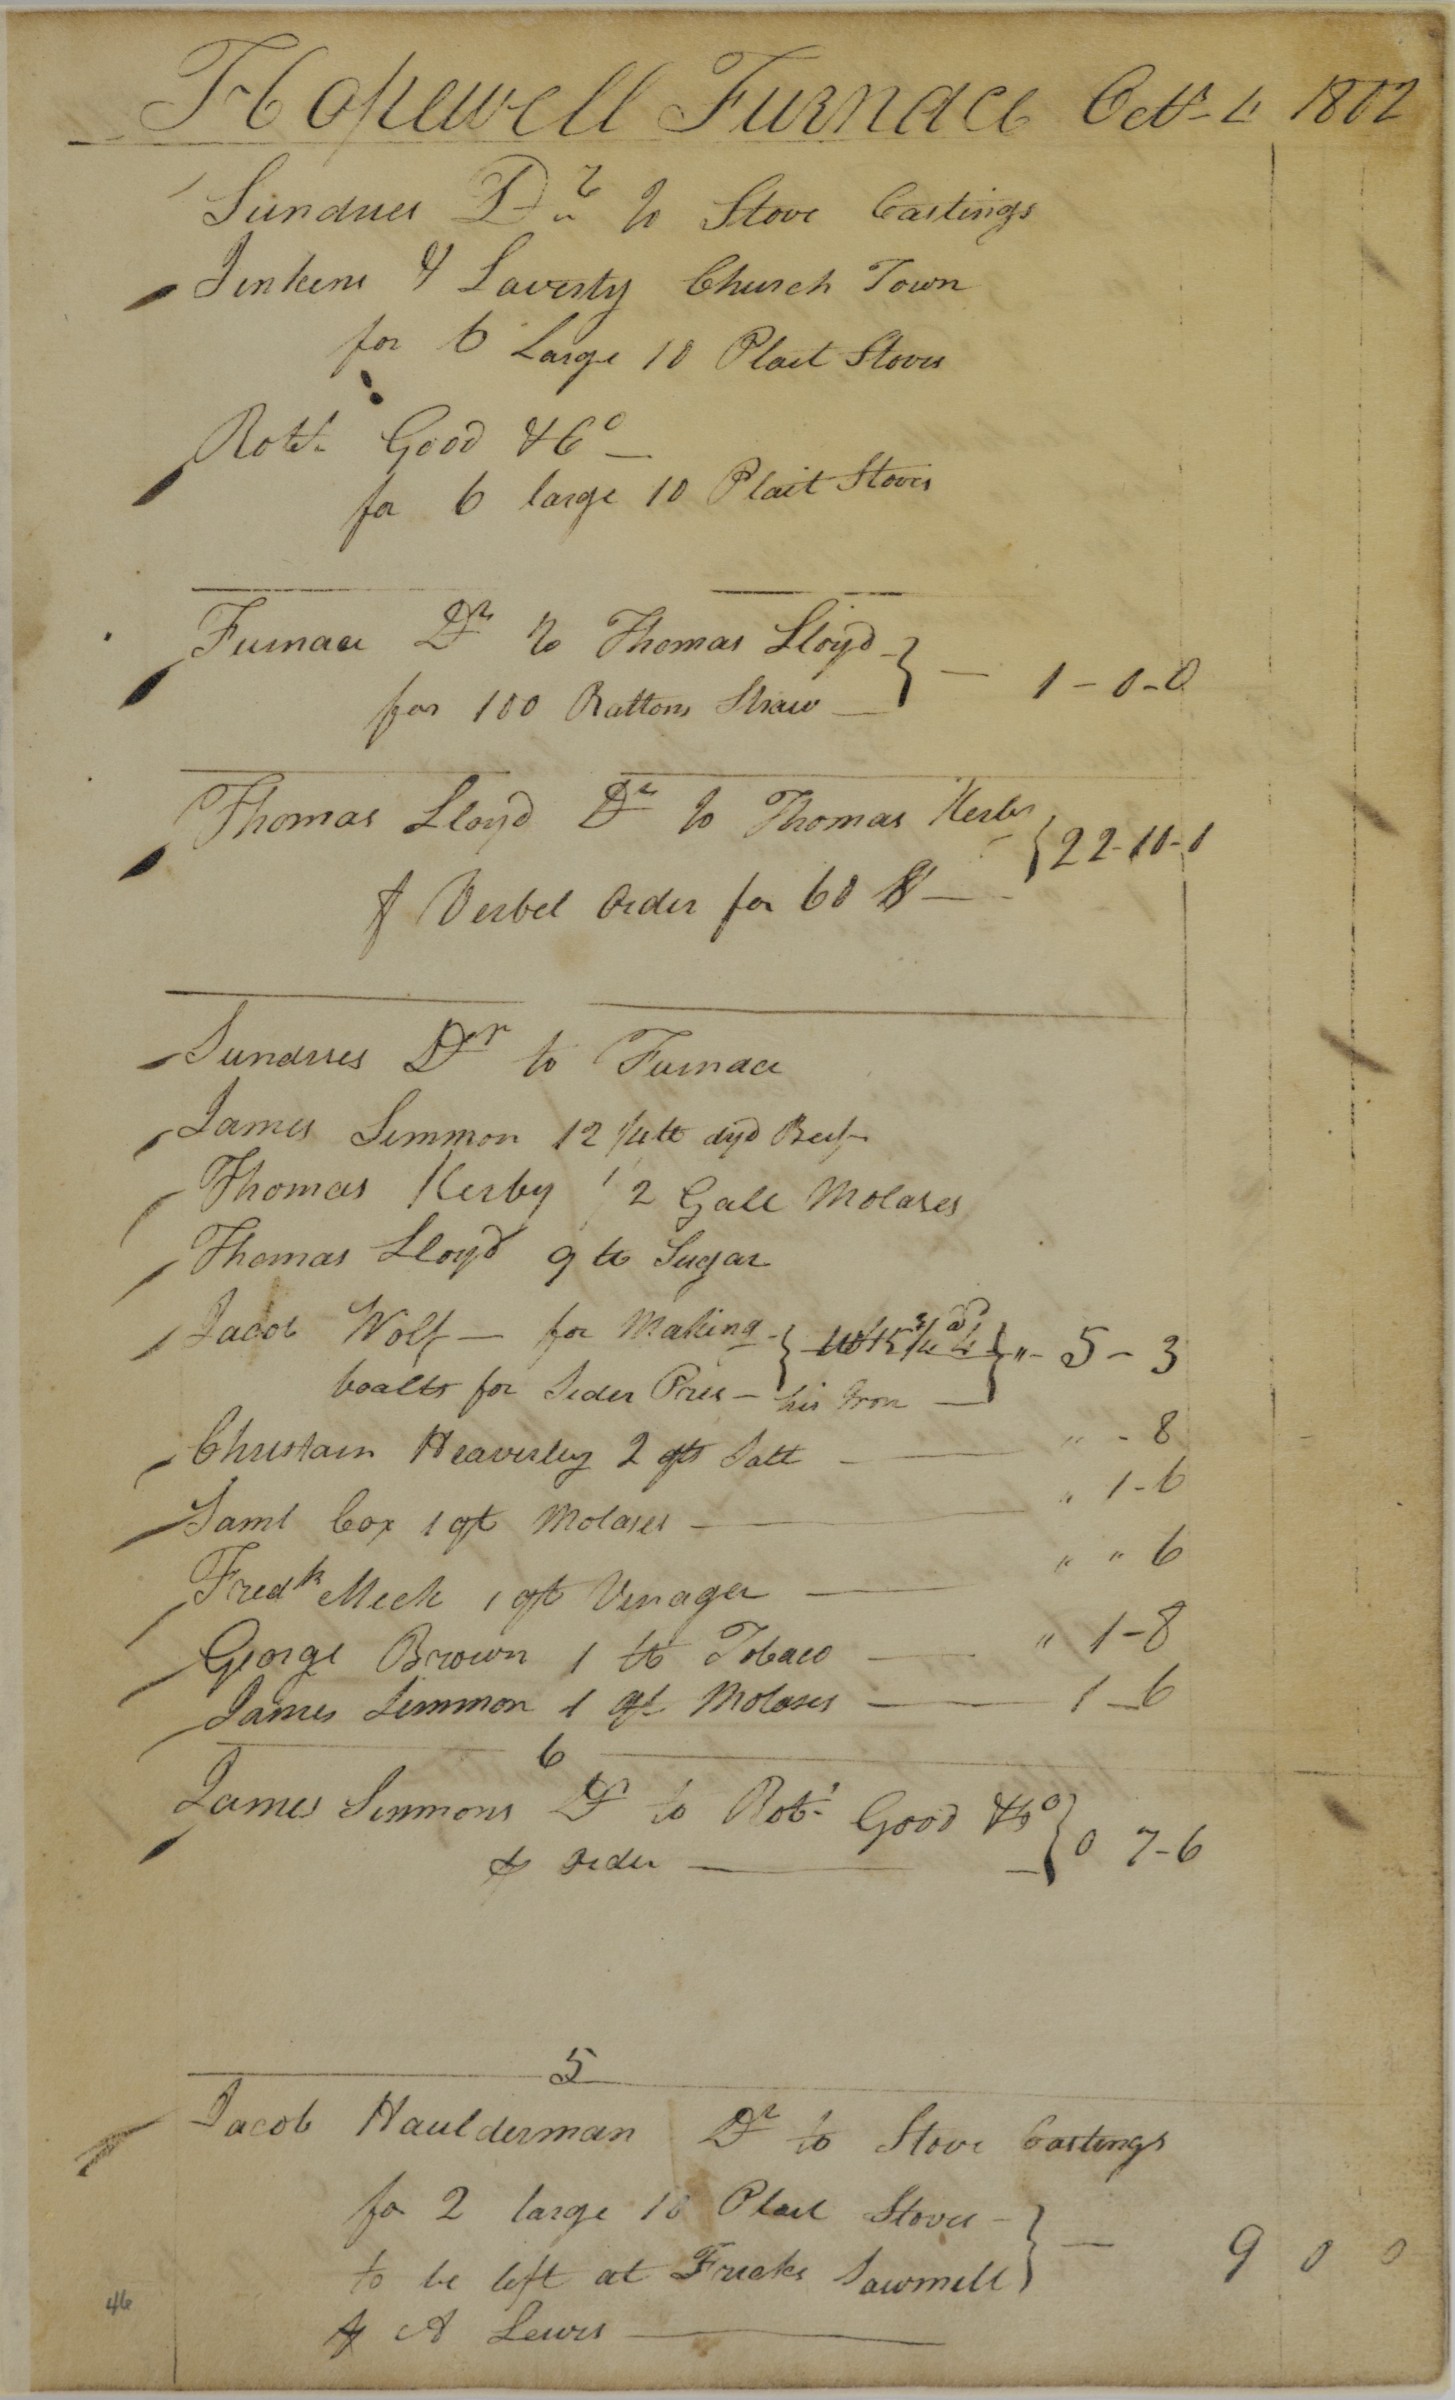 Hopewell Furnace Octr 4 1802
Sundries Dr to Stove Castings
Jenkins & Laverty Church Town
for 6 Large 10 Plait Stoves
Robt. Good & Co
for 6 large 10 Plait Stoves
Furnace Dr to Thomas Lloyd
for 100 Battons Straw 1-0-0
Thomas Lloyd Dr to Thomas Kerby
Verbel Order for 60 $ 22-10-0
Sundries Dr to Furnace
James Simmon 12 lb Beef
Thomas Kerby 2 Gall Molases
Thomas Lloyd 9 lb Sugar
Jacob Wolf for Making " 5-3
boalts for Sider Pres his Iron
Christain Heaverley 2 qts Salt " - 8
Saml Cox 1 qt Molases " 1-6
Fredk Meck 1 qt Vinager " " 6
George Brown 1 lb Tobaco " 1-8
James Simmon 1 qt Molases 1-6
6
James Simmons Dr to Robt Good & Co 0 7-6
Order
5
Jacob Haulderman Dr to Stove Castings
for 2 large 10 Plait Stoves
to be left at Fricks Sawmill 9 0 0
A Lewis
46